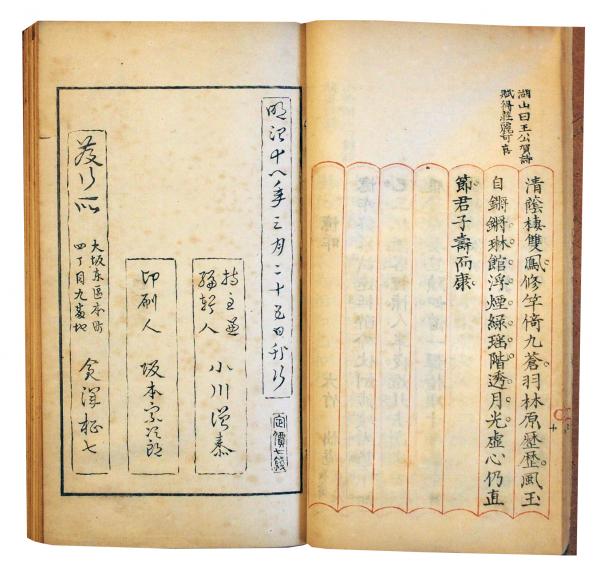 湖山曰王公賀詩
賦得莊麗可合
清蔭棲雙鳳修竿倚九蒼羽林原歷歷風玉
自鏘鏘琳館浮煙綠瑤階透月光虛心仍直
節君子壽而康
明治十八年三月二十五日刊行
定價七錢
持主兼
編輯人
小川僊泰
印刷人
坂本宗次郎
發行所
大坂東區本町
四丁目九番地